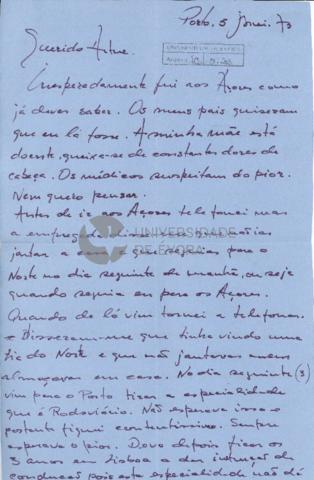 Porto, 5 Junei. 73
Querido Artur.
UNIVERSIDADE DE ÉVORA
Inesperadamente fui aos Açores como
já deves saber. Os meus pais quiseram
que eu lá fosse. A minha mãe está
doente, queixa-se de constantes dores de
cabeça. Os médicos suspeitam do pior.
Nem quero pensar.
Antes de ir aos Açores telefonei mas
a empregada
jantar a casa e que seguias para o
Norte no dia seguinte de manhã, ou seja
quando seguia eu para os Açores.
Quando de lá vim tornei a telefonar.
e Disseram-me que tinha vindo uma
tia do Norte e que não jantavas nem
almoçavas em casa. No dia seguinte (3)
vim para o Porto tirar a especialidade
que é Rodoviário. Não esperava isso e
portanto fiquei contentíssimo. Sempre
esperava o pior. Devo depois ficar os
3 anos em Lisboa a dar instrução de
condução pois esta especialidade não dá